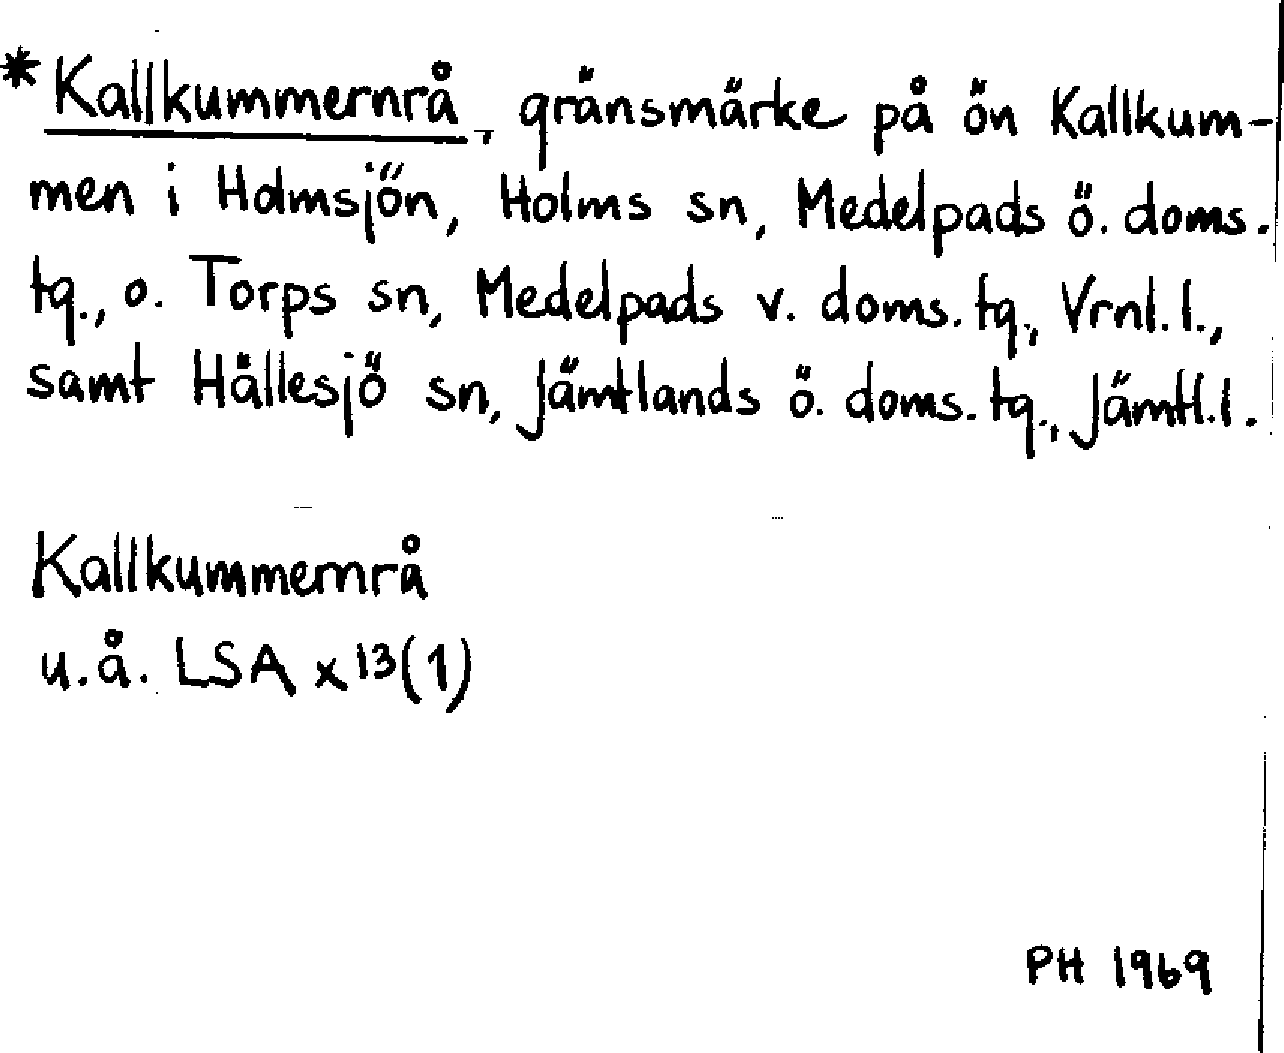 *Kallkummernrå, gränsmärke på ön Kallkum-
men i Holmsjön, Holms sn, Medelpads ö. doms.
tg., o. Torps sn, Medelpads v. doms. tg., Vrnl. l.,
samt Hällesjö sn, Jämtlands ö. doms. tg., Jämtl. l.
Kallkummernrå
u.å. LSA x13(1)
PH 1969